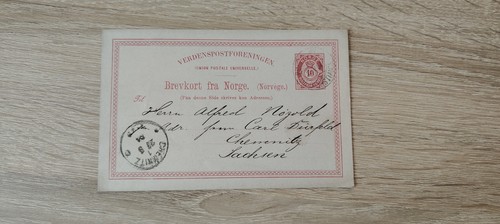 VERDENSPOSTFORENINGEN
(UNION POSTALE UNIVERSELLE.)
Brevkort fra Norge. (Norvège.)
(Paa denne Side skrives kun Adressen.)
10
Til
Herrn Alfred
Adr. Carl
Chemnitz
Sachsen
CHEMNITZ